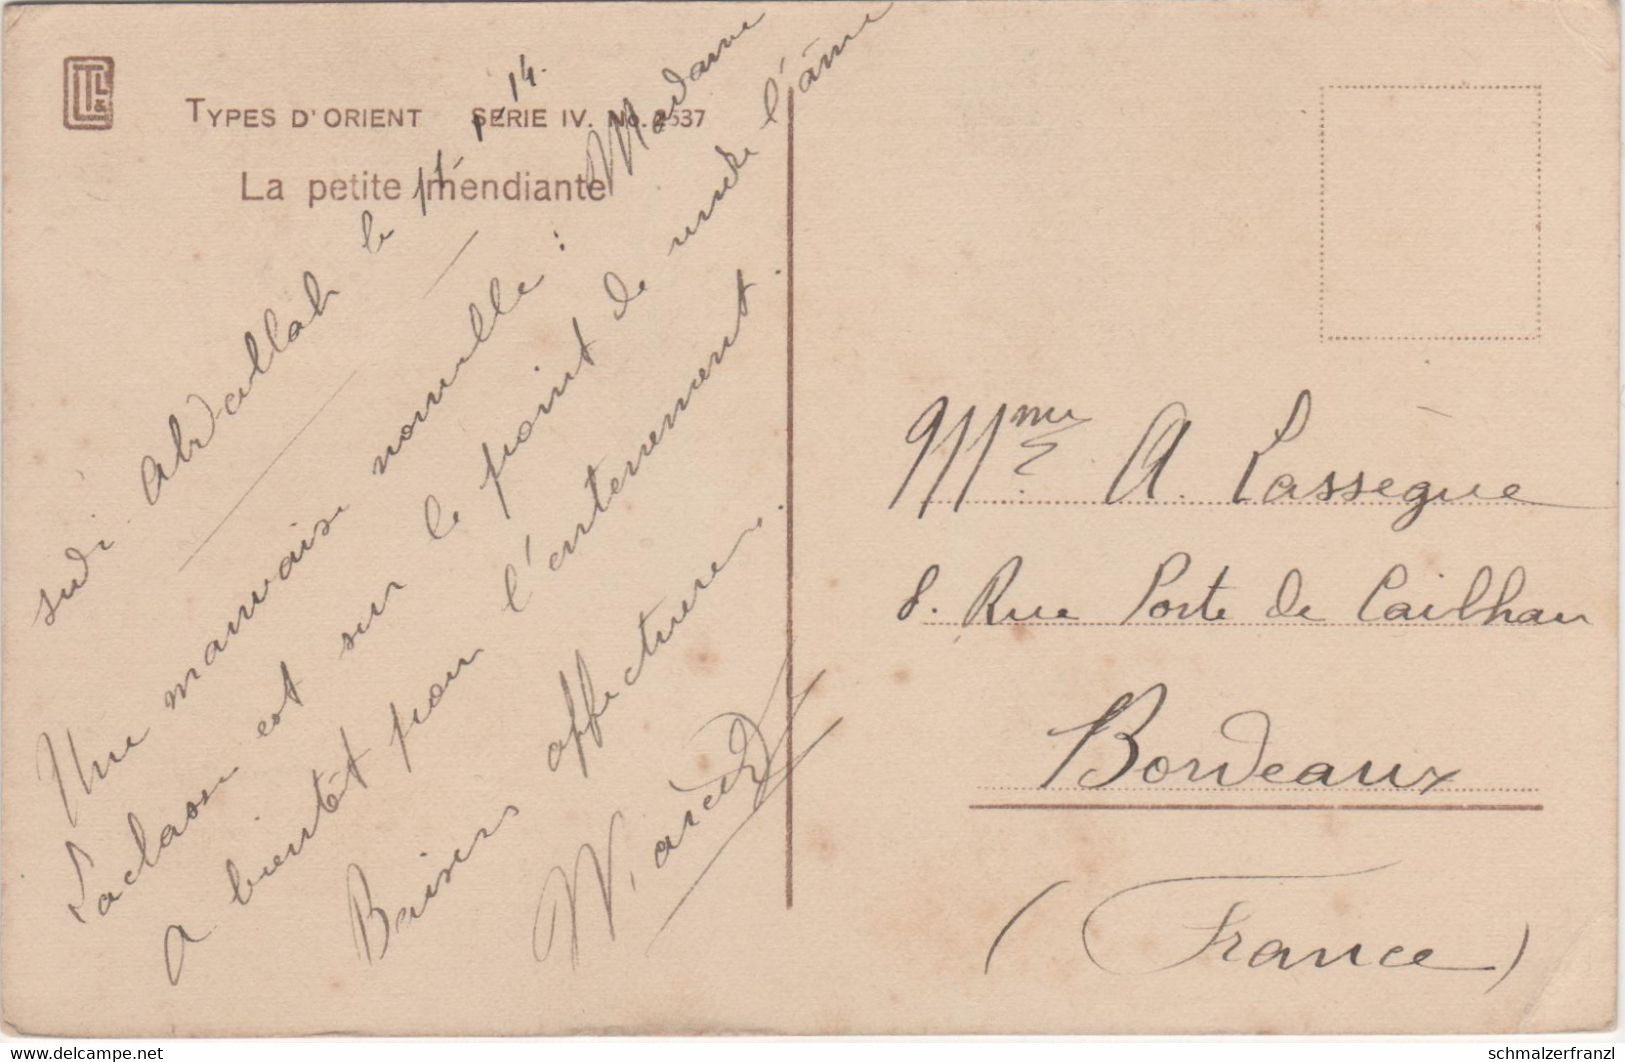 LTL&
TYPES D'ORIENT SERIE IV. No. 2537
La petite mendiante
Sidi Abdallah le 11-1-14.
Une mauvaise nouvelle : Madame
est sur le point de rendre l'âme
A bientôt pour l'enterrement.
Baisers affectueux.
Marcel
Mme A. Lassègue
8. Rue Porte de Cailhau
Bordeaux
(France)
www.delcampe.net
schmalzerfranzl